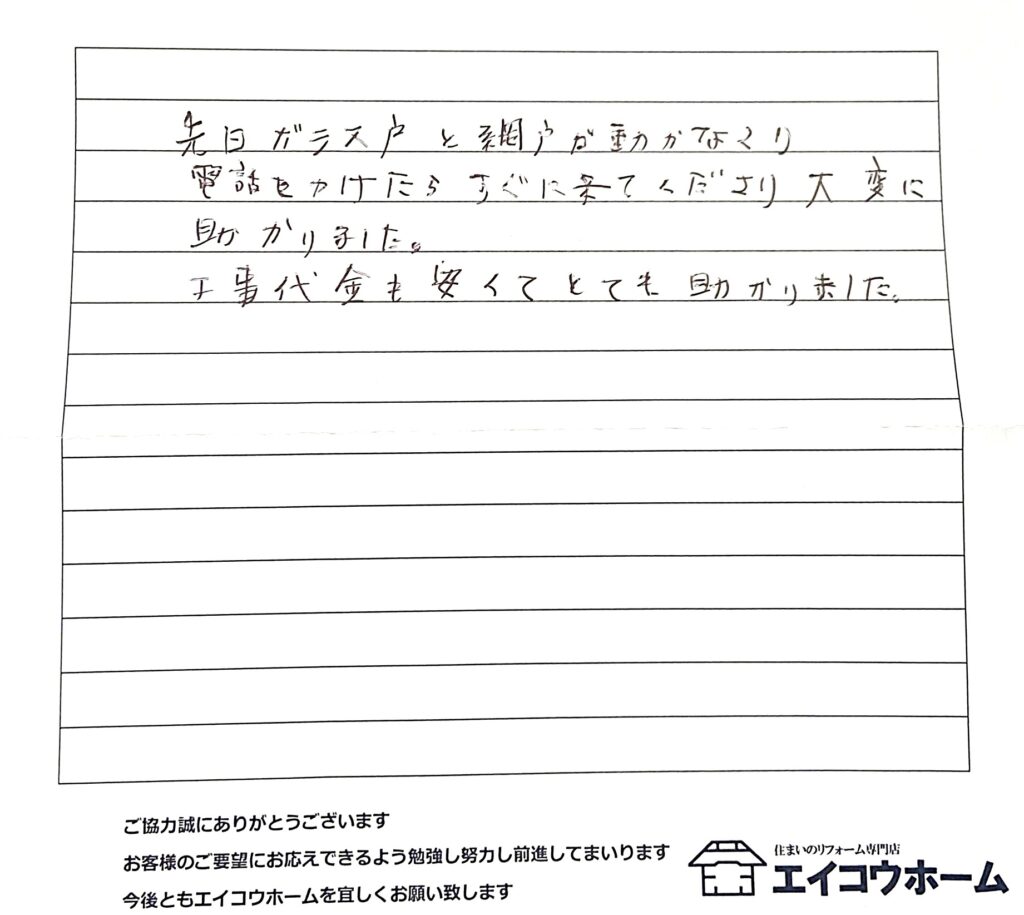 先日ガラス戸と網戸が動かなくり
電話をかけたらすぐに来てくださり大変に
助かりました。
工事代金も安くてとても助かりました。
ご協力誠にありがとうございます
お客様のご要望にお応えできるよう勉強し努力し前進してまいります
今後ともエイコウホームを宜しくお願い致します
住まいのリフォーム専門店
エイコウホーム